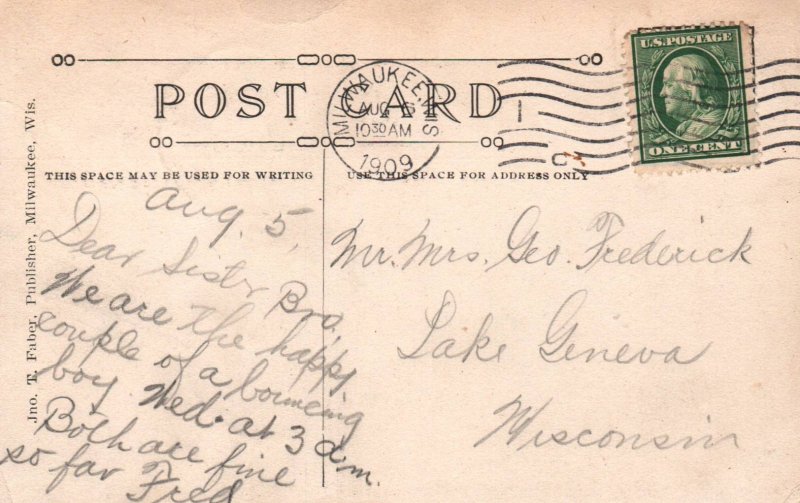 U.S. POSTAGE
ONE CENT
POST CARD
MILWAUKEE, WIS
AUG 5
10 30 AM
1909
THIS SPACE MAY BE USED FOR WRITING
USE THIS SPACE FOR ADDRESS ONLY
Jno. T. Faber, Publisher, Milwaukee, Wis.
Aug. 5,
Dear Sister Bro,
We are the happy
couple of a bouncing
boy. Wed. at 3 a.m.
Both are fine
so far Fred
Mr. Mrs. Geo. Frederick
Lake Geneva
Wisconsin